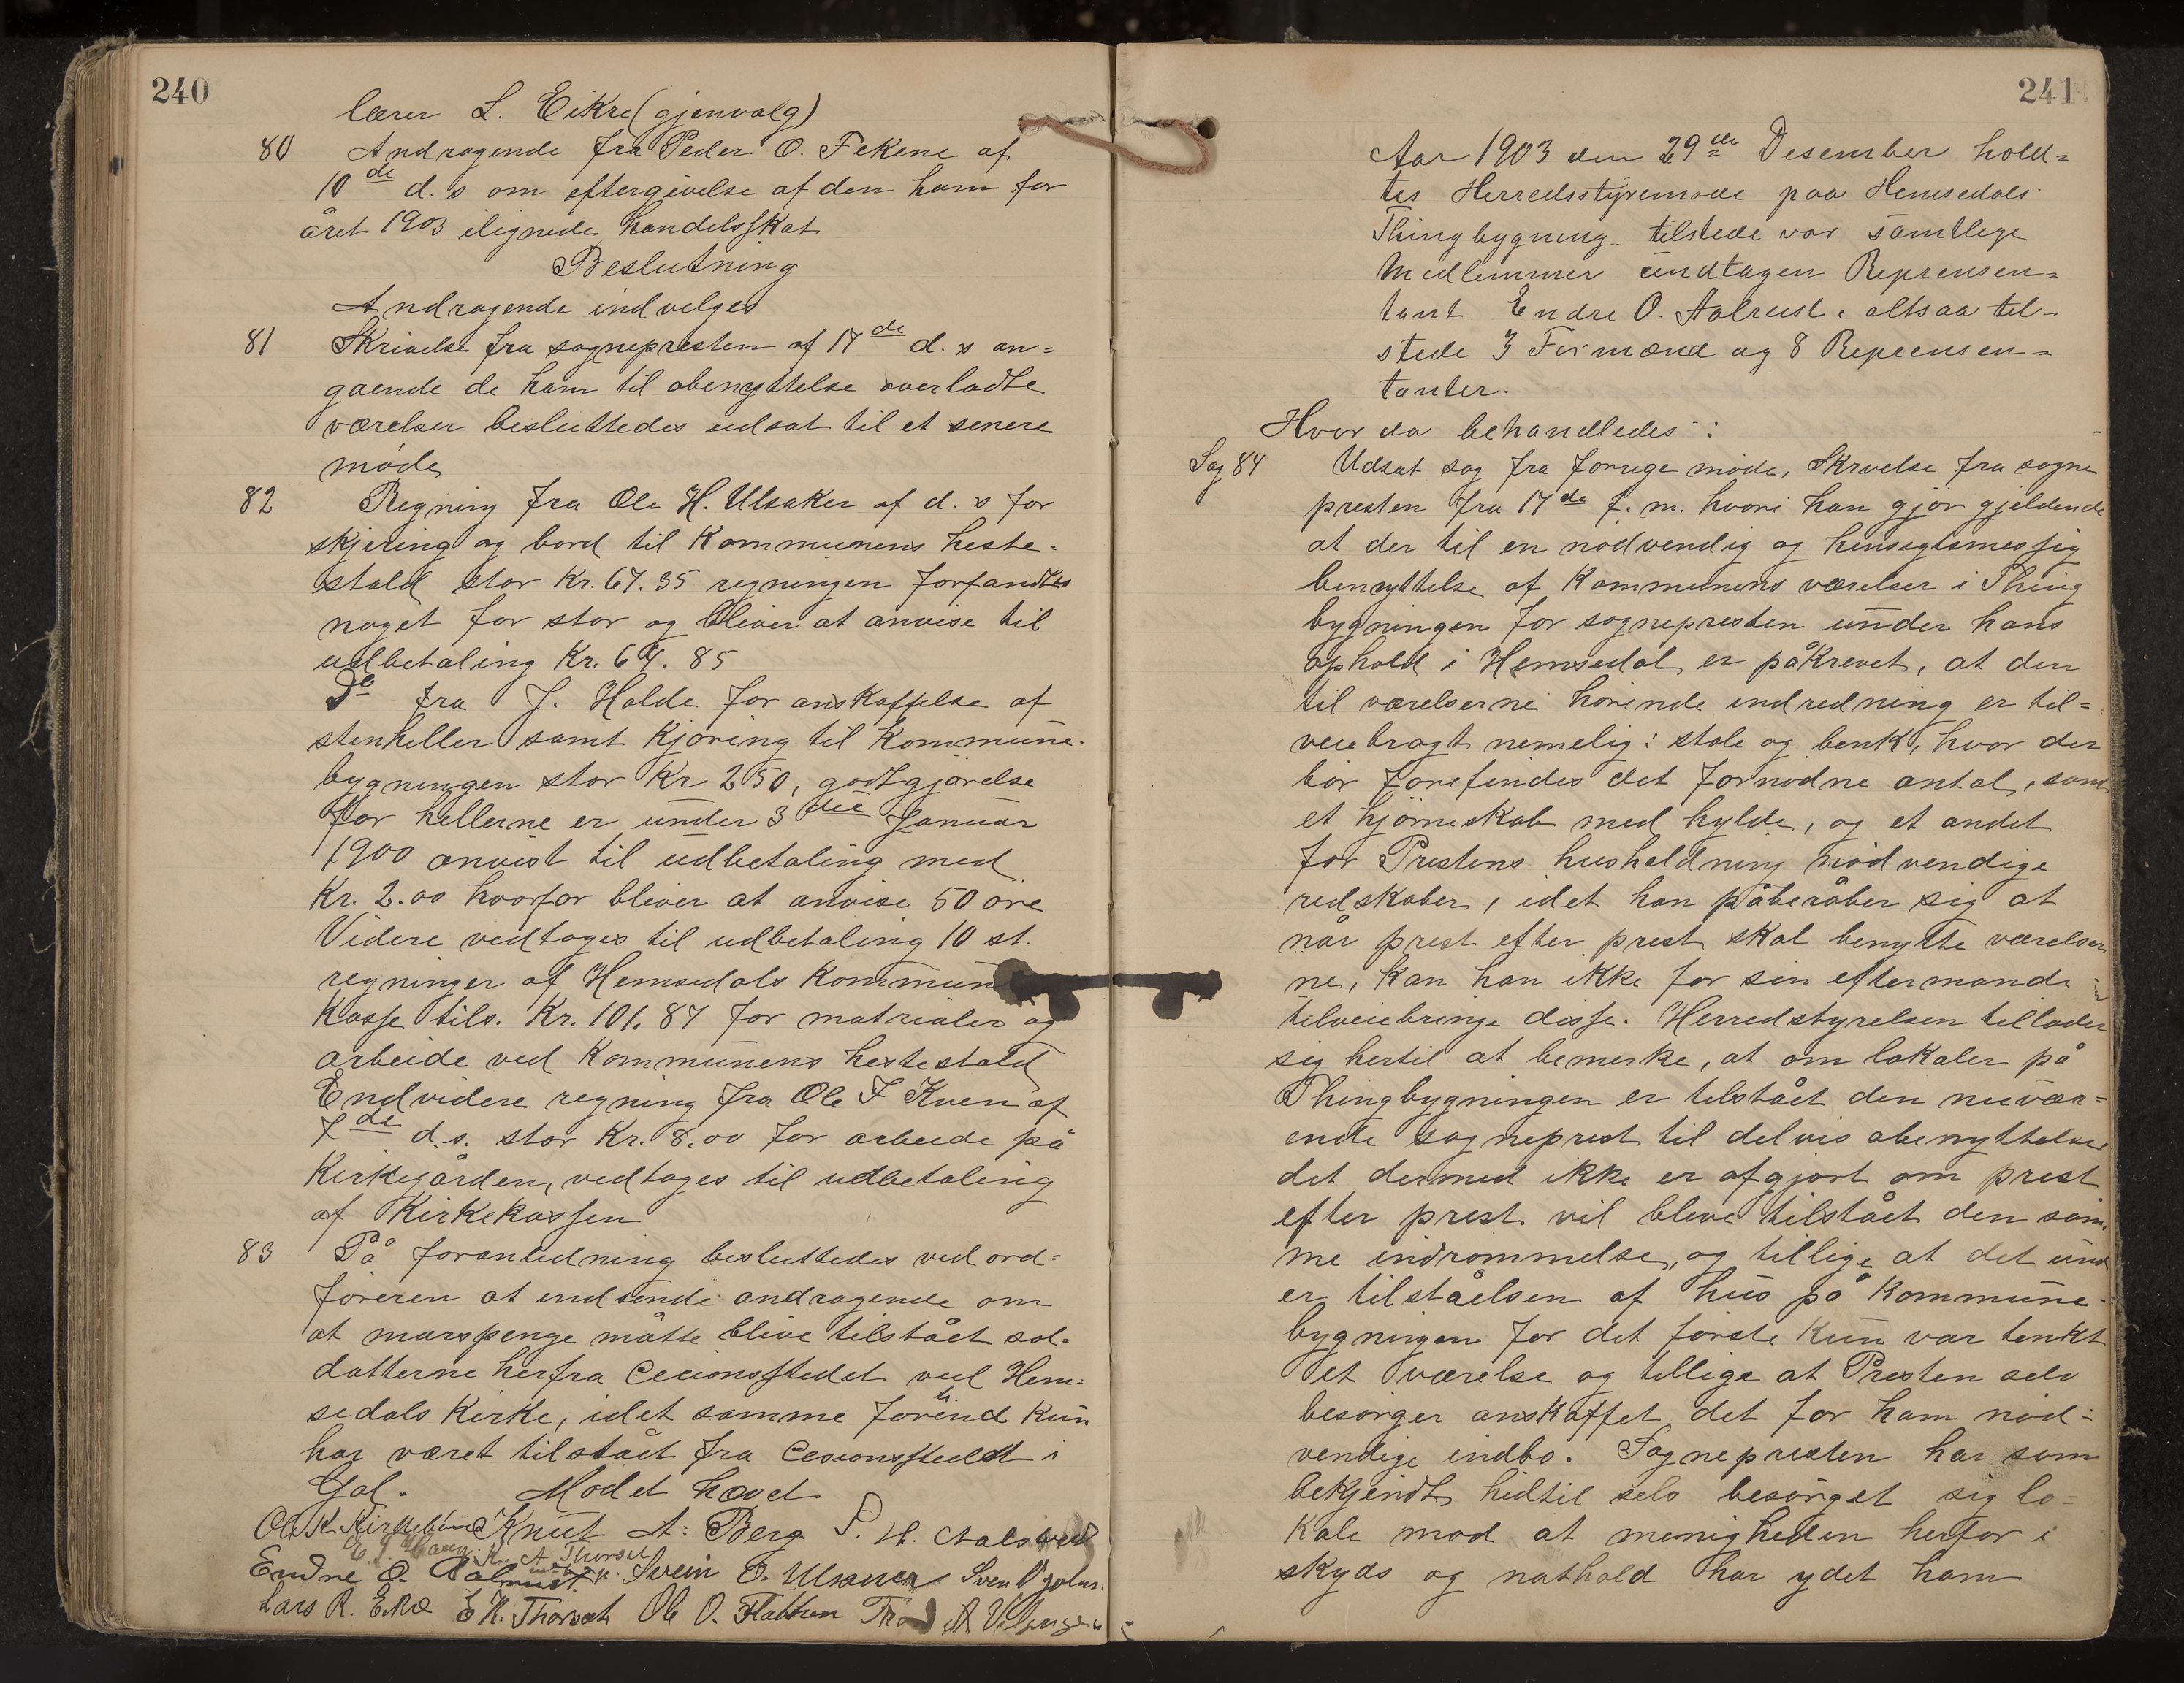 240
lærer L. Eikre (gjenvalg)
80 Andragende fra Peder O. Fekene af
10de d. s om eftergivelse af den ham for
året 1903 ilignede handelsskat
Beslutning
Andragende indvelges
81 Skrivelse fra sognepresten af 17de d. s an=
gaende de ham til abenyttelse overladte
værelser besluttedes udsat til et senere
møde
82 Regning fra Ole H. Ulsaker af d. s for
skjering og bord til Kommunens heste-
stald stor Kr. 67.35 regningen forfandtes
noget for stor og bliver at anvise til
udbetaling Kr. 64.85
Do fra J. Halde for anskaffelse af
stenheller samt Kjøring til Kommune-
bygningen stor Kr 250, godtgjørelse
for hellerne er under 3die Januar
1900 anvist til udbetaling med
Kr. 2.00 hvorfor bliver at anvise 50 øre
Videre vedtages til udbetaling 10 st.
regninger af Hemsedals Kommune
Kasse tils. Kr. 101.87 for matrialer og
arbeide ved Kommunens hestestald
Endvidere regning fra Ole I Kven af
7de d.s. stor Kr. 8.00 for arbeide på
Kirkegården, vedtages til udbetaling
af Kirkekassen
83 På foranledning besluttedes ved ord=
føreren at indsende andragende om
at marspenge måtte blive tilstået sol-
datterne herfra Cecionsstedet ved Hem=
sedals Kirke, idet samme forhend Kun
har været tilstået fra Cesionsstedt i
Gol. Mødet hævet
Ol. K. Kirkebøen Knut A. Berg P. H.
E. J. Haug K. A. Thorset
Endre O. Aalrust. Svein O. Ulsaker Sven
Lars R. Eikre E K. Thorset Ole O. Flaten
241
Aar 1903 den 29de Desember hold=
tes Herredsstyremøde paa Hemsedals
Thingbygning tilstede var samtlege
Medlemmer undtagen Reprensen=
tant Endre O. Aalrust, altsaa til-
stede 3 Formænd og 8 Reprensen=
tanter.
Hvor da behandledes :
Sag 84 Udsat sag fra forrige møde, Skrivelse fra sogne
presten fra 17de f. m. hvori han gjør gjeldende
at der til en nødvendig og hensigtsmessig
benyttelse af Kommunens værelser i Thing
bygningen for sognepresten under hans
ophold i Hemsedal er påkrevet, at den
til værelserne hørende indredning er til=
veiebragt nemelig: stole og benk, hvor der
bør forefindes det fornødne antal, samt
et hjørneskab med hylde, og et andet
for Prestens husholdning nødvendige
redskaber, idet han påberåber sig at
når prest efter prest skal benytte værelser
ne, kan han ikke for sin eftermand
tilveiebringe disse. Herredstyrelsen tillader
sig hertil at bemerke, at om lokaler på
Thingbygningen er tilstået den nuvær=
ende sogneprest til delvis abenyttelse
det dermed ikke er afgjort om prest
efter prest vil blive tilstået den sam
me indrømmelse, og tillige at det und
er tilståelsen af hus på Kommune-
bygningen for det første Kun var tenkt
et værelse og tillige at Presten selv
besørger anskaffet det for ham nød=
vendige indbo. Sognepresten har som
bekjendt hidtil selv besørget sig lo=
kale mod at menigheden herfor i
skyds og nathold har ydet ham